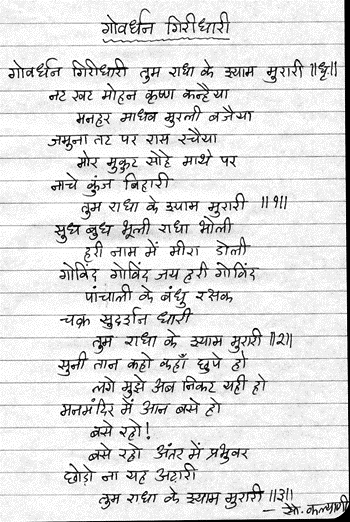 गोवर्धन गिरीधारी
गोवर्धन गिरीधारी तुम राधा के श्याम मुरारी ॥धृ॥
नट खट मोहन कृष्ण कन्हैया
मनहर माधव मुरली बजैया
जमुना तट पर रास रचैया
मोर मुकुट सोहे माथे पर
नाचे कुंज बिहारी
तुम राधा के श्याम मुरारी ॥१॥
सुध बुध भूली राधा भोली
हरी नाम में मीरा डोली
गोविंद गोविंद जय हरी गोविंद
पांचाली के बंधु रक्षक
चक्र सुदर्शन धारी
तुम राधा के श्याम मुरारी ॥२॥
सुनी तान कहो कहाँ छुपे हो
लगे मुझे अब निकट यही हो
मनमंदिर में आन बसे हो
बसे रहो!
बसे रहो अंतर में प्रभुवर
छोडो ना यह अटारी
तुम राधा के श्याम मुरारी ॥३॥
- सौ. कल्याणी